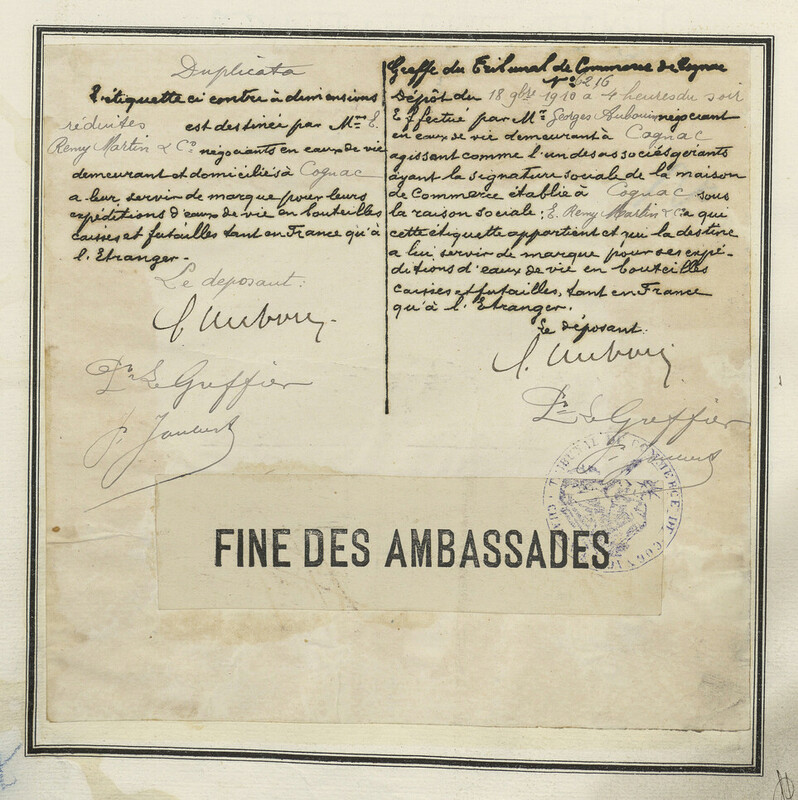 Duplicata
L'étiquette ci contre à dimensions
réduites est destinée par Mrs E.
Remy Martin & Co négociants en eaux de vie
demeurant et domiciliés à Cognac
a leur servir de marque pour leurs
expéditions d'eaux de vie en bouteilles
caisses et futailles tant en France qu'à
l'Etranger.-
Le deposant:
Pr Le Greffier
Greffe du Tribunal de Commerce de Cognac
No 6216
Dépôt du 18 9bre 1910 a 4 heures du soir
Effectué par Mr Georges Auboin négociant
en eaux de vie demeurant à Cognac
agissant comme l'un des associés gérants
ayant la signature sociale de la maison
de Commerce établie à Cognac sous
la raison sociale: E. Remy Martin & Co a qui
cette étiquette appartient et qui la destine
a lui servir de marque pour ses expé-
ditions d'eaux de vie en bouteilles
caisses et futailles, tant en France
qu'à l'Etranger.
Le déposant.
Pr Le Greffier
TRIBUNAL DE COMMERCE DE COGNAC
FINE DES AMBASSADES